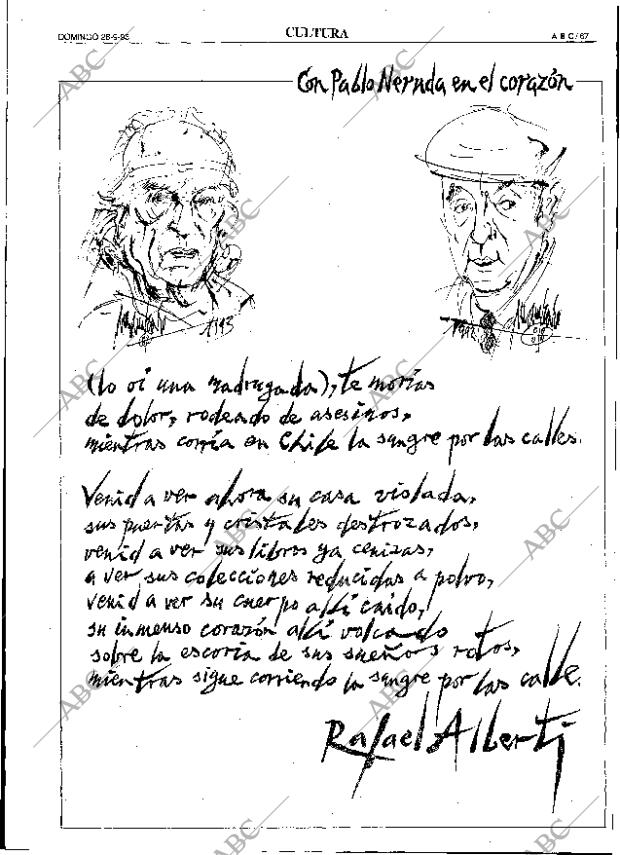 DOMINGO 26-9-93
CULTURA
A B C / 67
Con Pablo Neruda en el corazón
1993
(lo oí una madrugada), te morías
de dolor, rodeado de asesinos,
mientras corría en Chile la sangre por las calles.
Venid a ver ahora su casa violada,
sus puertas y cristales destrozados,
venid a ver sus libros ya cenizas,
a ver sus colecciones reducidas a polvo,
venid a ver su cuerpo allí caído,
su inmenso corazón allí volcado
sobre la escoria de sus sueños rotos,
mientras sigue corriendo la sangre por las calle.
Rafael Alberti